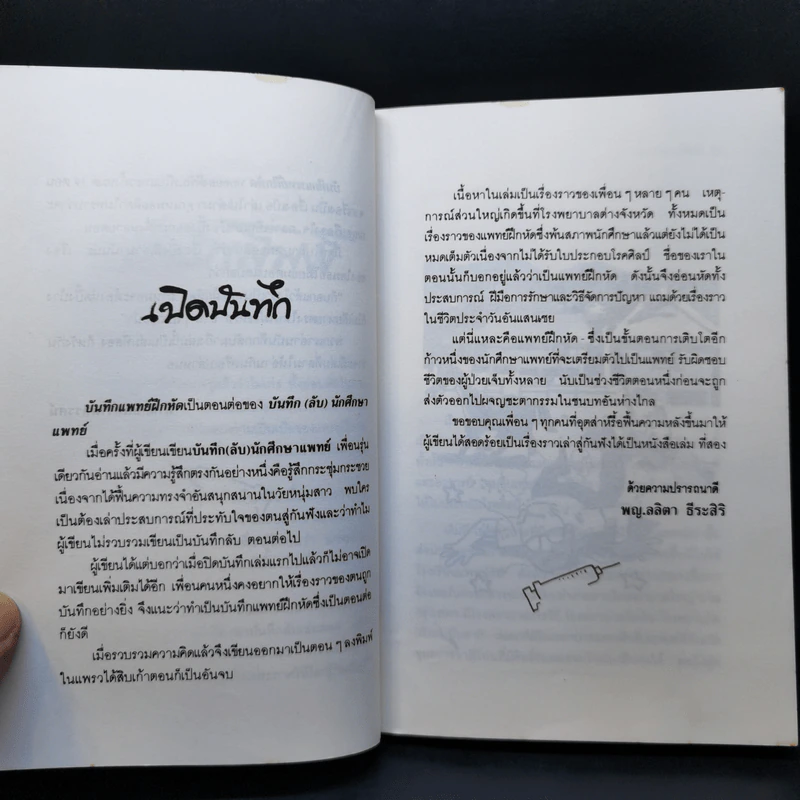 เปิดบันทึก
บันทึกแพทย์ฝึกหัดเป็นตอนต่อของ บันทึก (ลับ) นักศึกษา
แพทย์
เมื่อครั้งที่ผู้เขียนเขียนบันทึก(ลับ)นักศึกษาแพทย์ เพื่อนรุ่น
เดียวกันอ่านแล้วมีความรู้สึกตรงกันอย่างหนึ่งคือรู้สึกกระชุ่มกระชวย
เนื่องจากได้ฟื้นความทรงจำอันสนุกสนานในวัยหนุ่มสาว พบใคร
เป็นต้องเล่าประสบการณ์ที่ประทับใจของตนสู่กันฟังและว่าทำไม
ผู้เขียนไม่รวบรวมเขียนเป็นบันทึกลับ ตอนต่อไป
ผู้เขียนได้แต่บอกว่าเมื่อปิดบันทึกเล่มแรกไปแล้วก็ไม่อาจเปิด
มาเขียนเพิ่มเติมได้อีก เพื่อนคนหนึ่งคงอยากให้เรื่องราวของตนถูก
บันทึกอย่างยิ่ง จึงแนะว่าทำเป็นบันทึกแพทย์ฝึกหัดซึ่งเป็นตอนต่อ
ก็ยังดี
เมื่อรวบรวมความคิดแล้วจึงเขียนออกมาเป็นตอน ๆ ลงพิมพ์
ในแพรวได้สิบเก้าตอนก็เป็นอันจบ
เนื้อหาในเล่มเป็นเรื่องราวของเพื่อน ๆ หลาย ๆ คน เหตุ-
การณ์ส่วนใหญ่เกิดขึ้นที่โรงพยาบาลต่างจังหวัด ทั้งหมดเป็น
เรื่องราวของแพทย์ฝึกหัดซึ่งพ้นสภาพนักศึกษาแล้วแต่ยังไม่ได้เป็น
หมอเต็มตัวเนื่องจากไม่ได้รับใบประกอบโรคศิลป์ ชื่อของเราใน
ตอนนั้นก็บอกอยู่แล้วว่าเป็นแพทย์ฝึกหัด ดังนั้นจึงอ่อนหัดทั้ง
ประสบการณ์ ฝีมือการรักษาและวิธีจัดการปัญหา แถมด้วยเรื่องราว
ในชีวิตประจำวันอันแสนเซย
แต่นี่แหละคือแพทย์ฝึกหัด - ซึ่งเป็นขั้นตอนการเติบโตอีก
ก้าวหนึ่งของนักศึกษาแพทย์ที่จะเตรียมตัวไปเป็นแพทย์ รับผิดชอบ
ชีวิตของผู้ป่วยเจ็บทั้งหลาย นับเป็นช่วงชีวิตตอนหนึ่งก่อนจะถูก
ส่งตัวออกไปผจญชะตากรรมในชนบทอันห่างไกล
ขอขอบคุณเพื่อน ๆ ทุกคนที่อุตส่าห์รื้อฟื้นความหลังขึ้นมาให้
ผู้เขียนได้สอดร้อยเป็นเรื่องราวเล่าสู่กันฟังได้เป็นหนังสือเล่ม ที่สอง
ด้วยความปรารถนาดี
พญ.ลลิตา ธีระสิริ